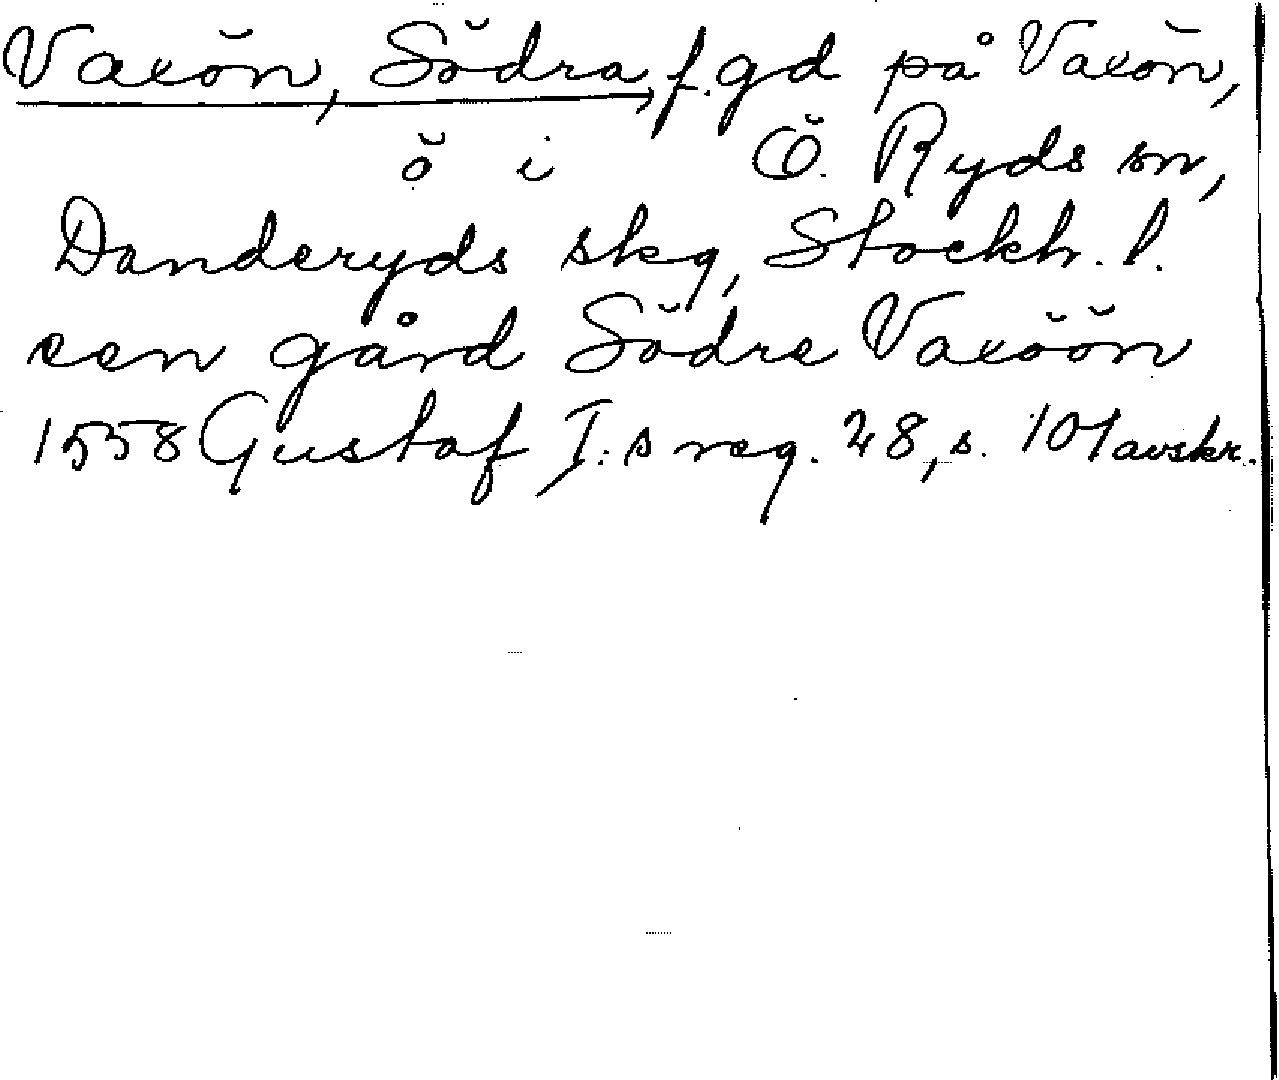 Vaxön, Södra, f. gd på Vaxön,
ö i Ö. Ryds sn,
Danderyds skg, Stockh. l.
een gård Södre Vaxöön
1558 Gustaf I:s reg. 28, s. 101 avskr.